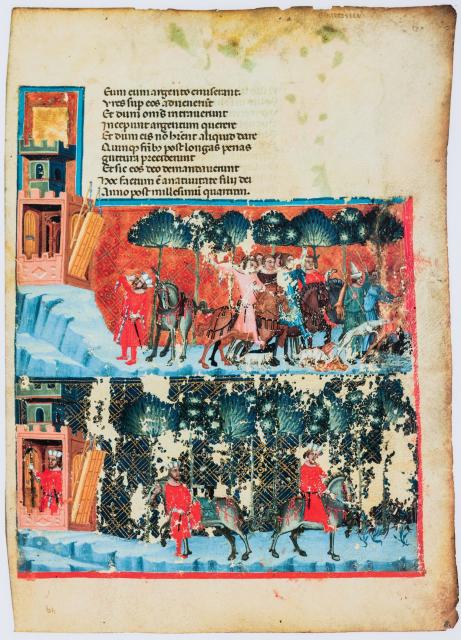 Eum eum argento emiserant.
sup eos advenerūt
Et dum omēs intrauerunt
Incepunt argentum querere
Et dum eis nō hrent aliquid dare
sibi post longas penas
guttura preciderunt
Et sic eos deo demandauerunt
Hoc factum ē anatiuitate filij dei
Anno post millesimum quartum.